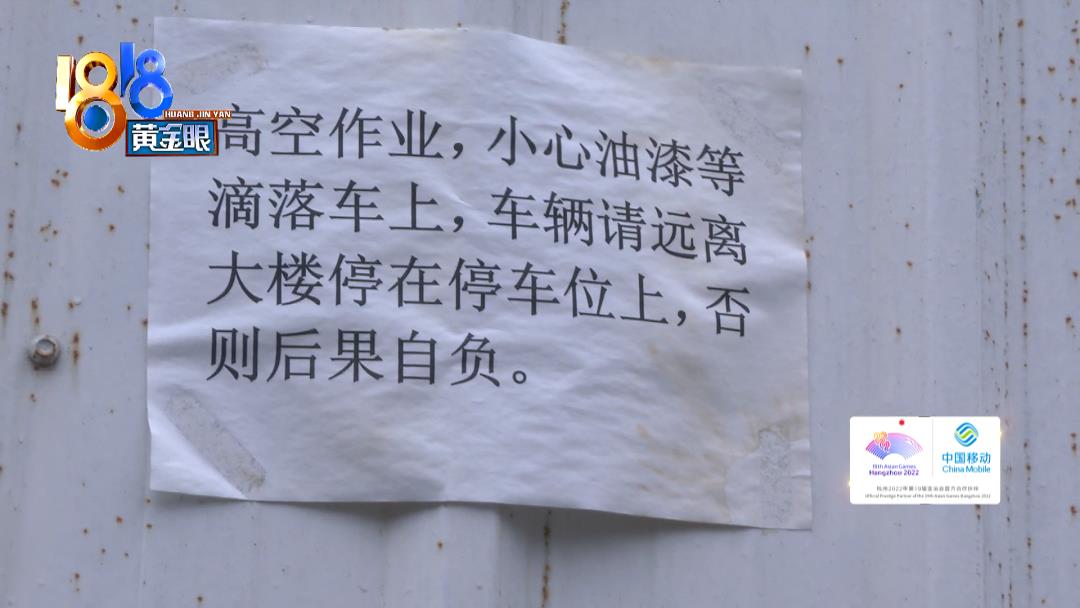 1818
HUANG JIN YAN
黄金眼
高空作业，小心油漆等
滴落车上，车辆请远离
大楼停在停车位上，否
则后果自负。
19th Asian Games
Hangzhou 2022
中国移动
China Mobile
杭州2022年第19届亚运会官方合作伙伴
Official Prestige Partner of the 19th Asian Games Hangzhou 2022